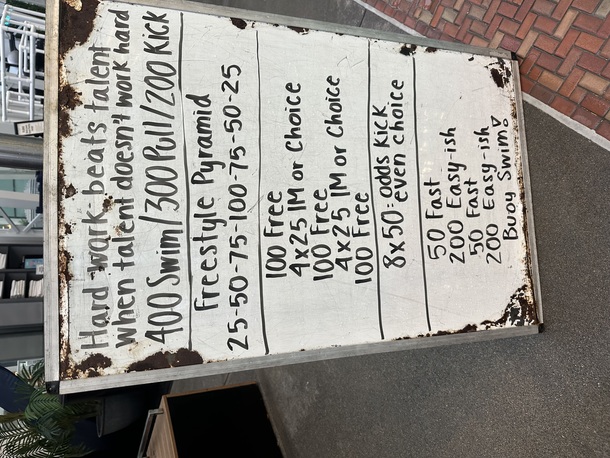 Hard work beats talent
when talent doesn't work hard
400 Swim/300 Pull/200 Kick
Freestyle Pyramid
25-50-75-100-75-50-25
100 Free
4x25 IM or Choice
100 Free
4x25 IM or Choice
100 Free
8x50: odds Kick
even choice
50 Fast
200 Easy-ish
50 Fast
200 Easy-ish
Buoy Swim!